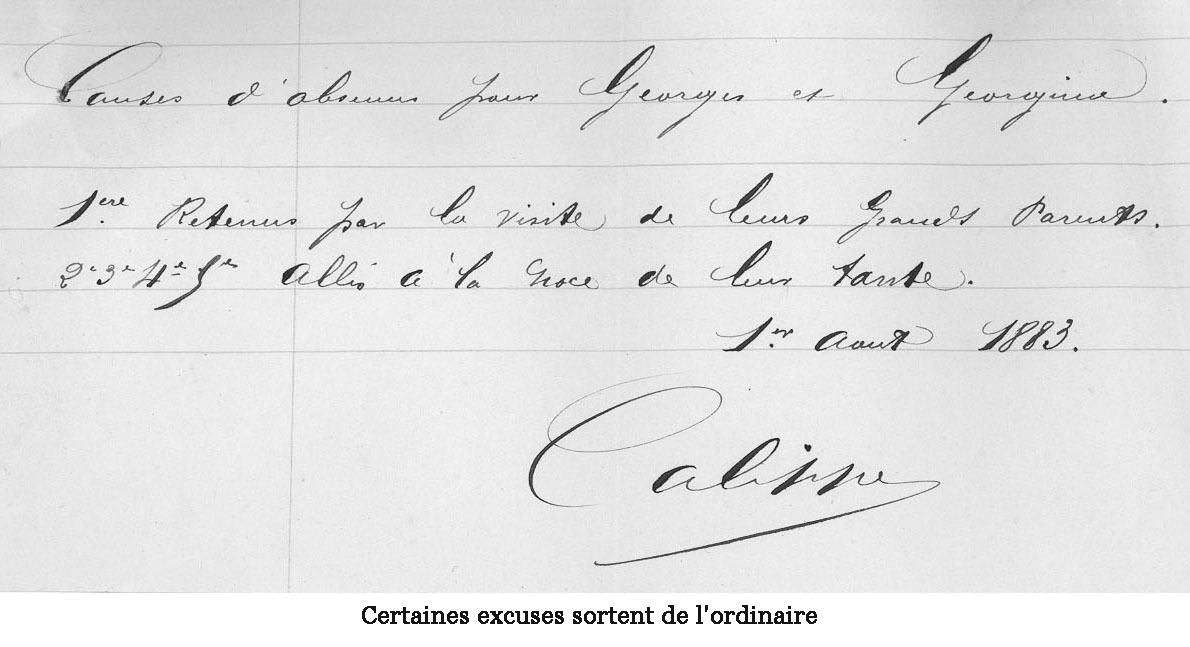 Causes d'absences pour Georges et Georgina.
1ère Retenus par la visite de leurs Grands Parents.
2e 3e 4e 5e Allés à la Noce de leur tante.
1er Aout 1883.
Calippe
Certaines excuses sortent de l'ordinaire